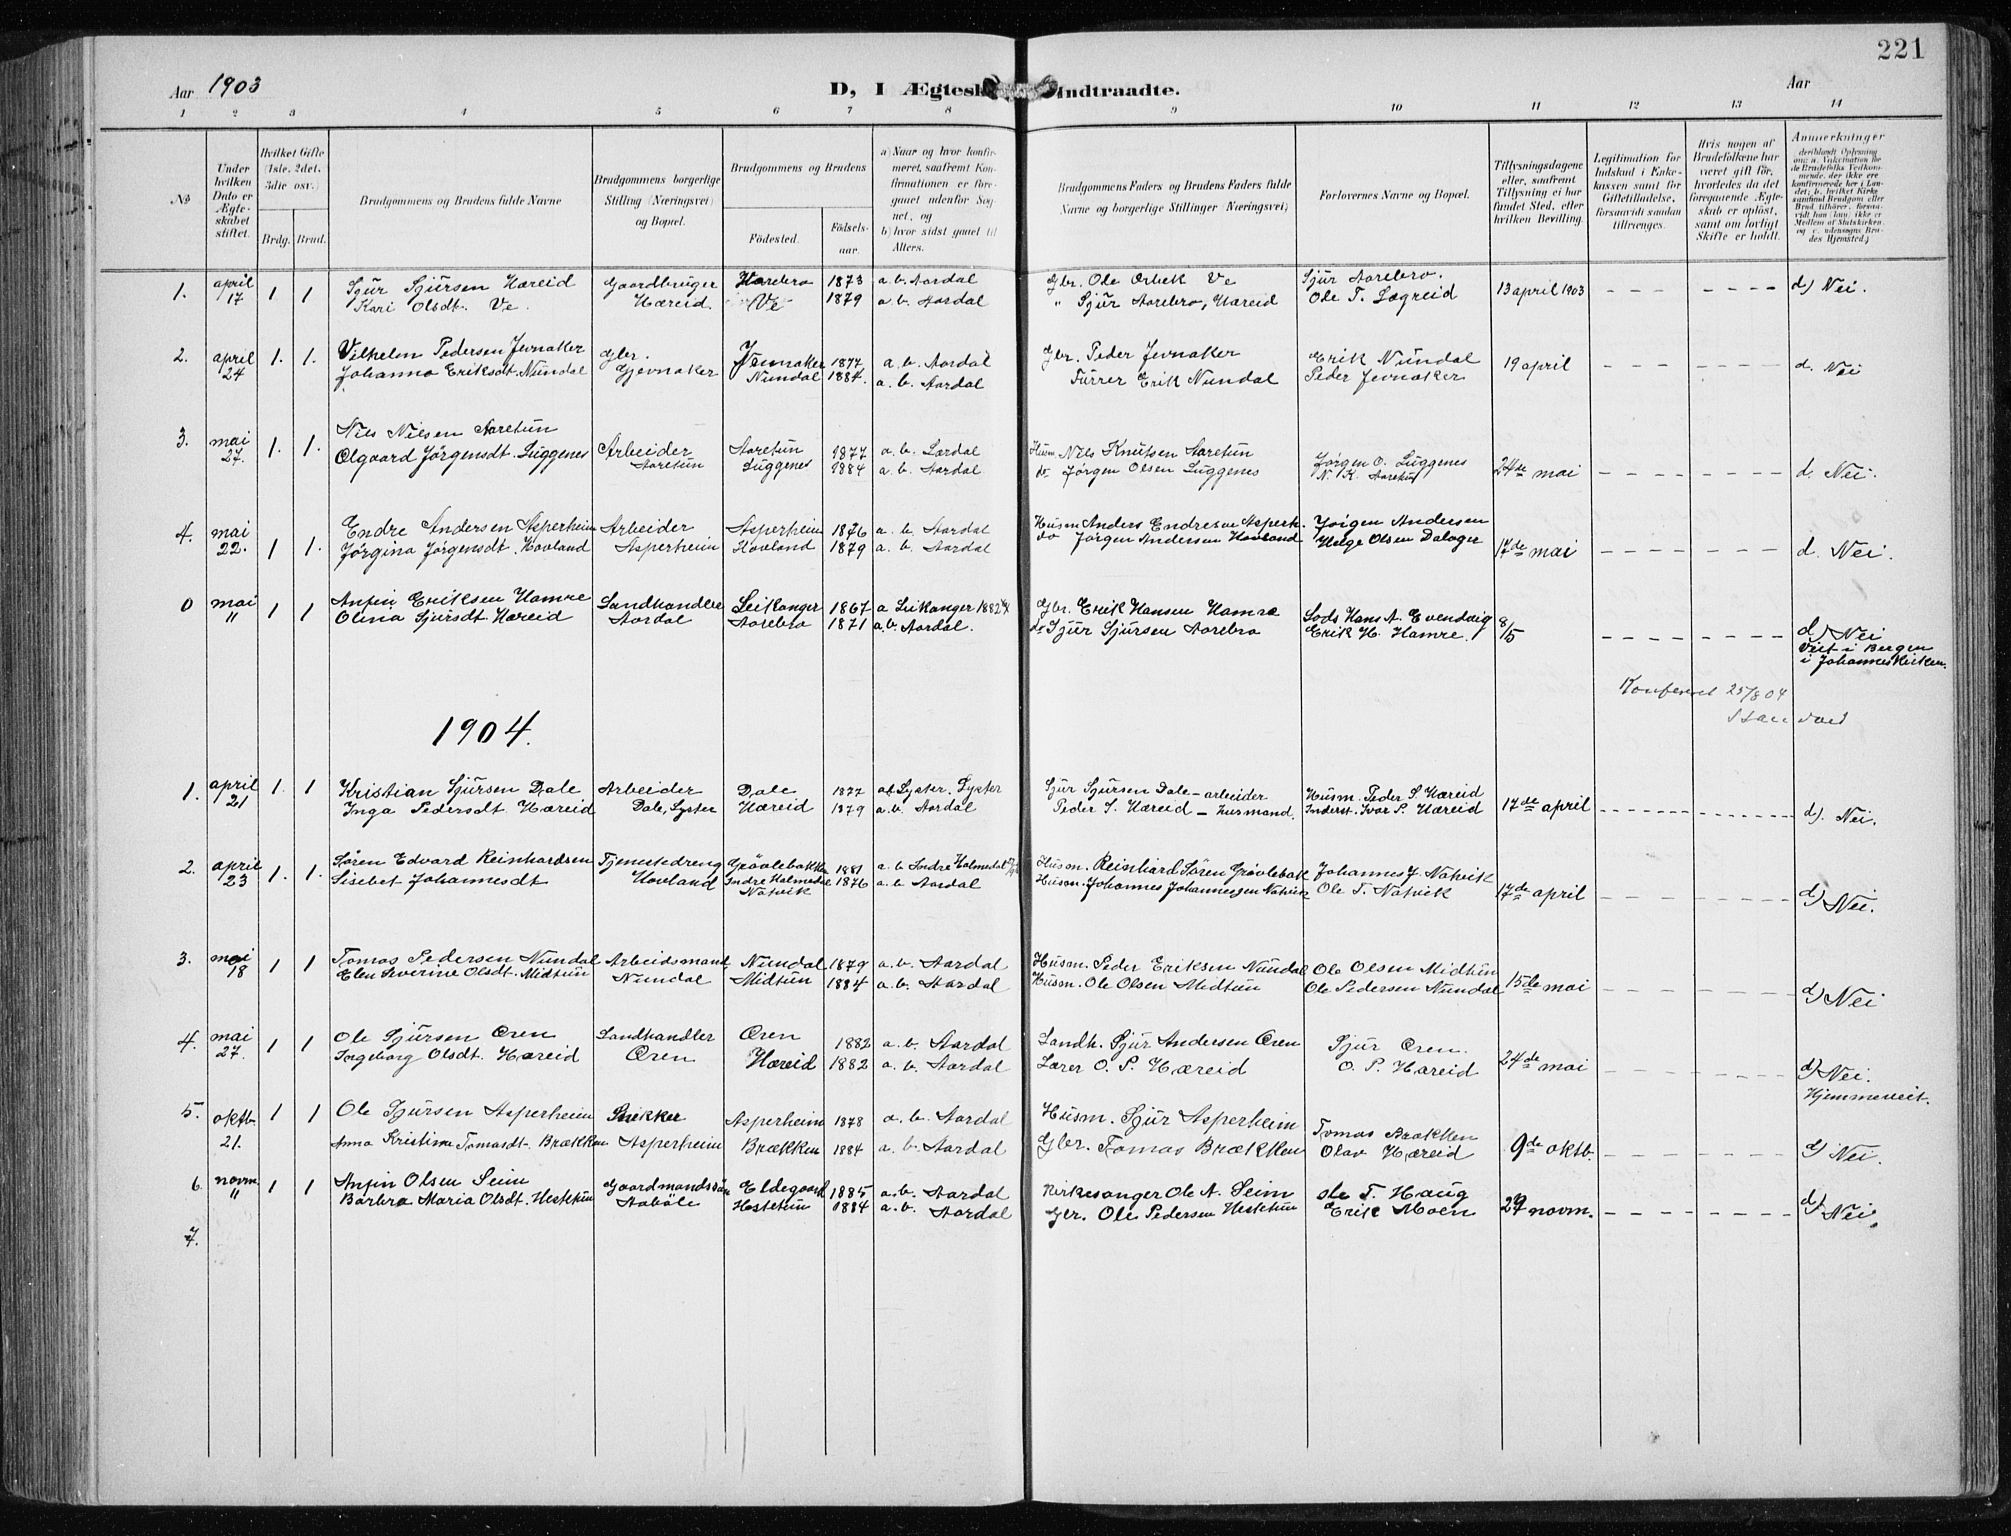 221
Aar 1903 D, I Ægtesk Indtraadte. Aar
1 2 3 4 5 6 7 8 9 10 11 12 13 14
No
Under hvilken Dato er Ægteskabet stiftet.
Hvilket Gifte (1ste, 2det, 3die osv.)
Brdg. Brud.
Brudgommens og Brudens fulde Navne
Brudgommens borgerlige Stilling (Næringsvei) og Bopæl.
Brudgommens og Brudens
Fødested. Fødselsaar.
a) Naar og hvor konfirmeret, saafremt Konfirmationen er foregaaet udenfor Sognet, og b) hvor sidst gaaet til Alters.
Brudgommens Faders og Brudens Faders fulde Navne og borgerlige Stillinger (Næringsvei)
Forlovernes Navne og Bopæl.
Tillysningsdagene eller, saafremt Tillysning ei har fundet Sted, efter hvilken Bevilling.
Legitimation for Indskud i Enkekassen samt for Giftetilladelse, forsaavidt saadan tiltrænges.
Hvis nogen af Brudefolkene har været gift før, hvorledes da det foregaaende Ægteskab er opløst, samt om lovligt Skifte er holdt.
Anmerkninger
1. april 17 1 1 Sjur Sjursen Hæreid Gaardbruger Aarebro 1873 a.b. Aardal Gbr. Ole Orbek Ve Sjur Aarebro. 13 april 1903 d) Nei.
Kari Olsdt. Ve. Hæreid. Ve 1879 a.b. Aardal " Sjur Aarebro, Hæreid Ole T. Lægreid
2. april 24 1. 1. Vilhelm Pedersen Jevnaker Gbr. Jevnaker 1877 a.b. Aardal Gbr. Peder Jevnaker Erik Nundal 19 april d. Nei
Johanna Eriksdt. Nundal Gjevnaker Nundal 1884. a.b. Aardal Furrer Erik Nundal Peder Jevnaker
3. mai 27. 1. 1. Nils Nilsen Aaretun Arbeider Aaretun 1877 a.b. Lærdal Husm. Nils Knutsen Aaretun Jørgen O. Luggenes 24de mai d. Nei.
Olgaard Jørgensdt. Luggenes Aaretun Luggenes 1884 a.b. Aardal do Jørgen Olsen Luggenes N. K. Aaretun
4. mai 22. 1 1. Endre Andersen Asperheim Arbeider Asperheim 1876 a.b. Aardal Husm Anders Endresen Asperh. Jørgen Andersen 17de mai d. Nei.
Jørgina Jørgensdt. Hovland Asperheim Hovland 1879 a.b. Aardal do Jørgen Andersen Hovland Helge Olsen Daløger
0 mai 11 1 1 Anfin Eriksen Hamre Landhandler Leikanger 1867 a Leikanger 1882 Gbr. Erik Hansen Hamre Lods Hans A. Evendvig 8/5 d) Nei
Olina Sjursdt. Hæreid Aardal Aarebro 1871 a.b. Aardal. do Sjur Sjursen Aarebro Erik H. Hamre. Viet i Bergen
i Johanneskirken.
Konfereret 25/8 04
1904.
1. april 21 1. 1 Kristian Sjursen Dale Arbeider Dale 1877 a.b. Lyster. Lyster Sjur Sjursen Dale - arbeider Husm. Peder S Hæreid 17de april d). Nei.
Inga Pedersdt. Hæreid Dale, Lyster Hæreid 1879 a.b. Aardal Peder S. Hæreid - husmand. Inderst. Ivar P. Hæreid
2. april 23 1. 1. Søren Edvard Reinhardsen Tjenestedreng Grøvlebakken 1881 a.b Indre Holmedal Husm. Reinhard Søren Grøvlebak Johannes J. Natvik 17de april d) Nei.
Lisebet Johannesdt Hovland Indre Holmedal 1876 a.b. Aardal Husm. Johannes Johannessen Natvik Ole T. Natvik
Natvik
3. mai 18 1 1 Tomas Pedersen Nundal Arbeidsmand Nundal 1879 a.b. Aardal Husm. Peder Eriksen Nundal Ole Olsen Midtun 15de mai d) Nei
Elen Severine Olsdt. Midtun Nundal Midtun 1884 a.b. Aardal Husm. Ole Olsen Midtun Ole Pedersen Nundal
4. mai 27. 1 1 Ole Sjursen Øren Landhandler Øren 1882 a.b. Aardal Landh. Sjur Andersen Øren Sjur Øren. 24de mai d) Nei.
Ingeborg Olsdt. Hæreid Øren Hæreid 1882 a.b. Aardal Lærer O. P. Hæreid O. P. Hæreid Hjemmeviet.
5. oktb. 21. 1 1 Ole Sjursen Asperheim Snikker Asperheim 1878 a.b. Aardal Husm. Sjur Asperheim Tomas Brækken 9de oktb. d) Nei.
Anna Kristina Tomasdt. Brækken Asperheim Brækken 1884 a.b. Aardal Gbr. Tomas Brækken Olav Hæreid
6. novm. 11 1 1 Anfin Olsen Seim Gaardmandssøn Eldegaard 1885 a.b. Aardal Kirkesanger Ole A. Seim Ole T. Haug 27 novm. d) Nei.
Barbra Maria Olsdt. Hestetun Aabøle Hestetun 1884 a.b. Aardal Gbr. Ole Pedersen Hestetun Erik Moen
7.